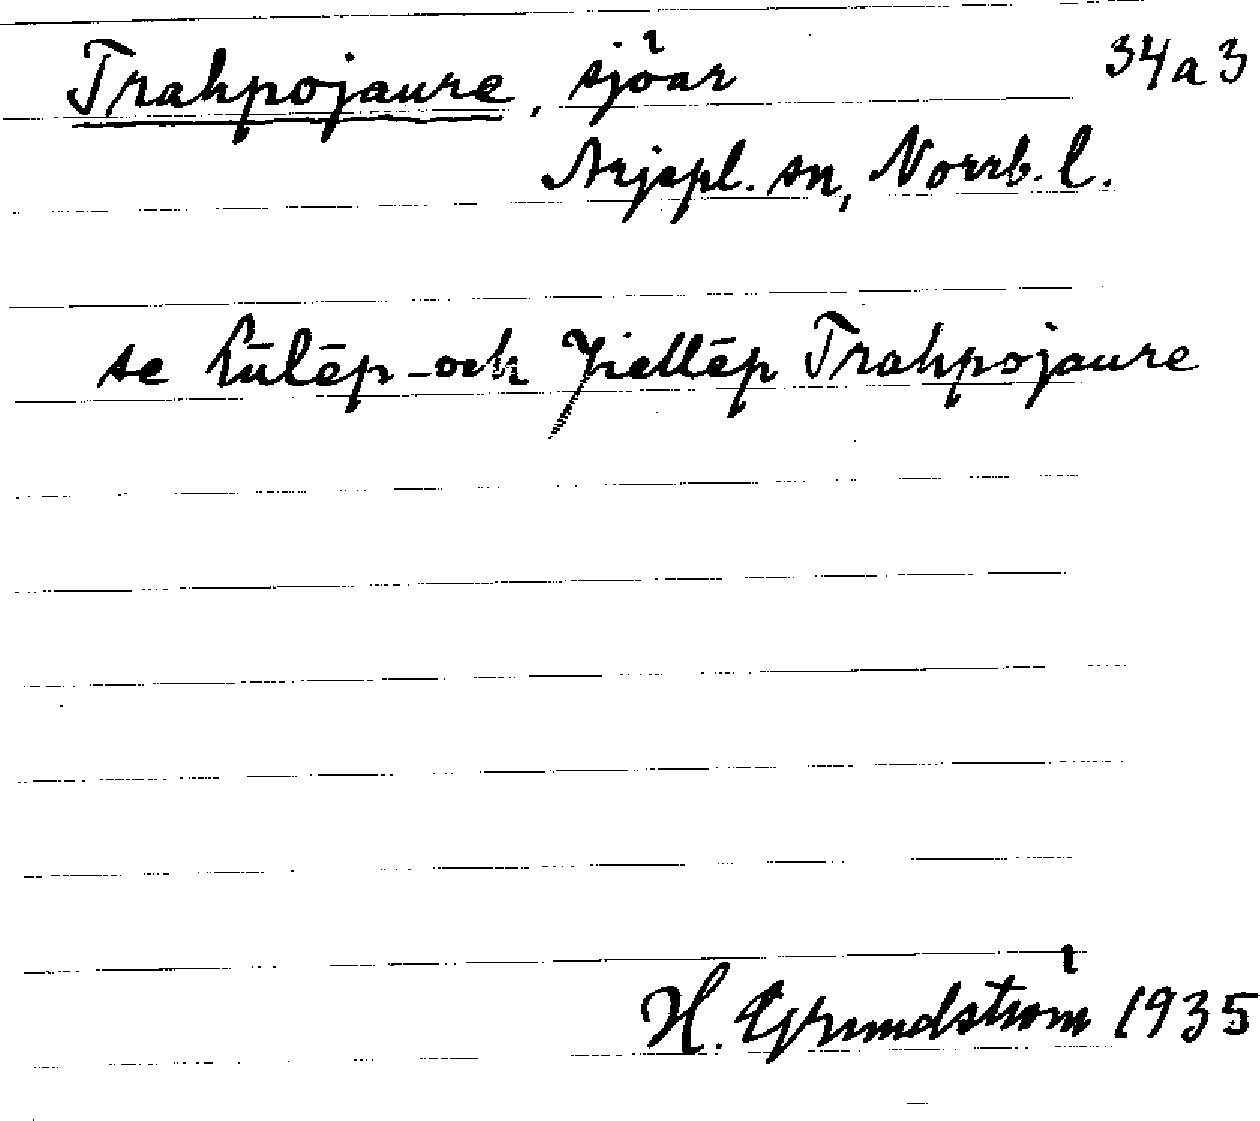 Trahpojaure, sjöar 34a3
Arjepl. sn, Norrb. l.
se Lūlēp- och Jiellēp Trahpojaure
H. Grundström 1935